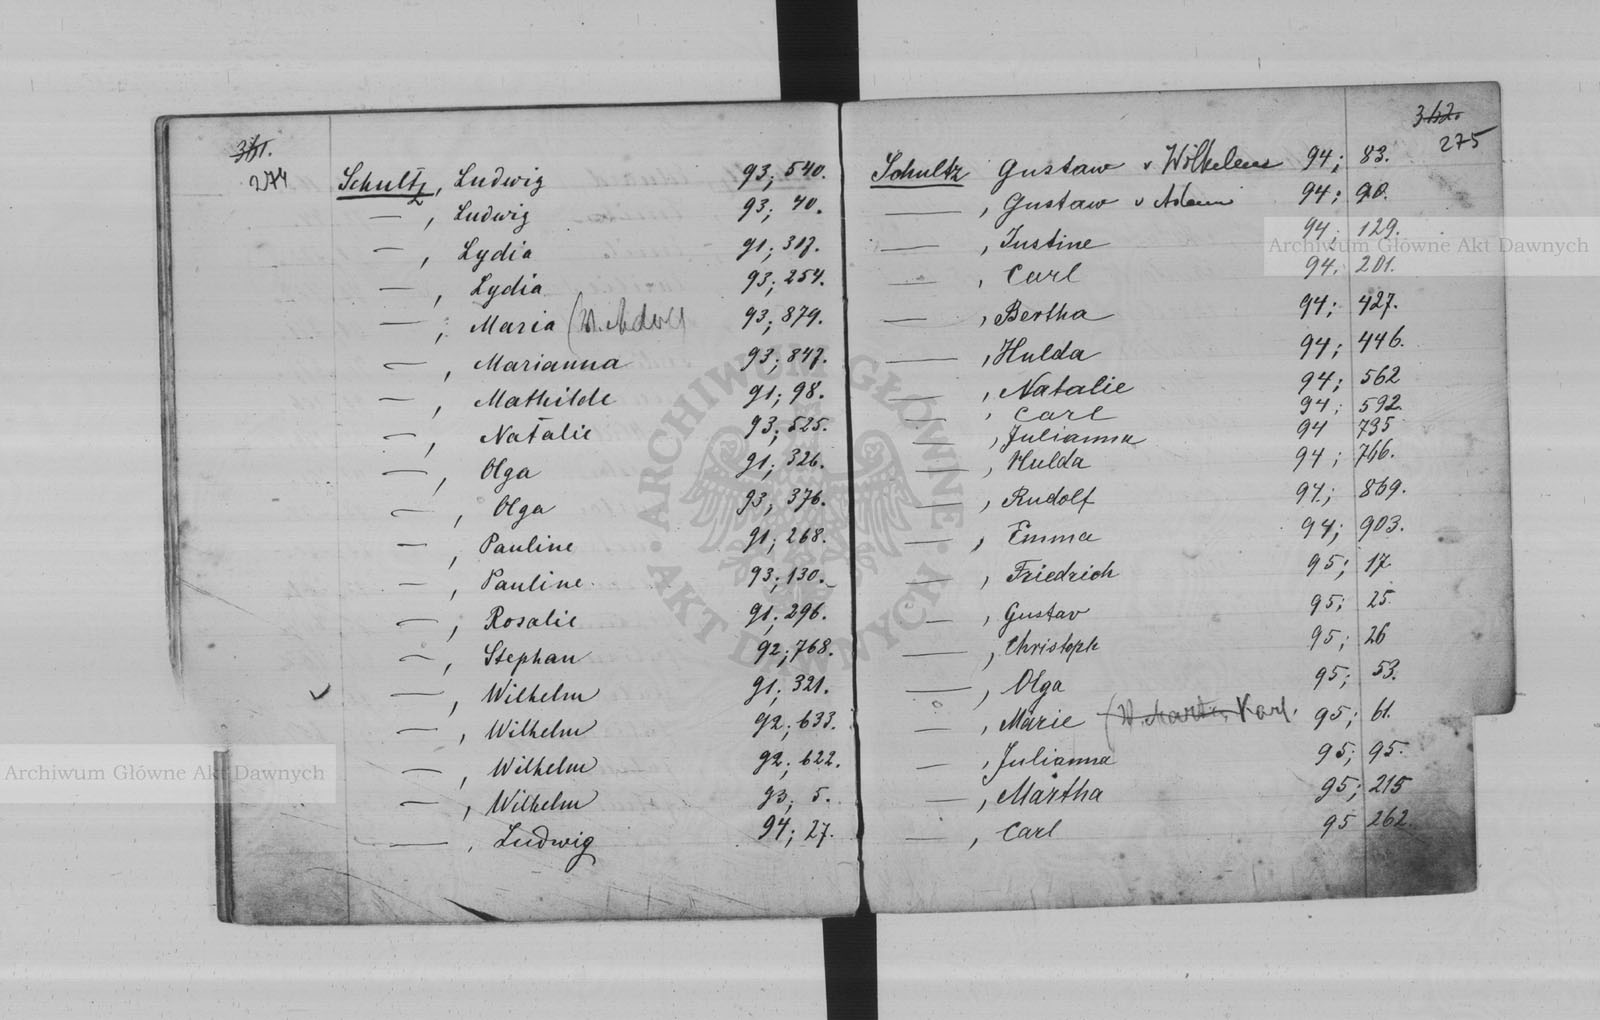 361.
274
Schultz, Ludwig 93; 540.
— , Ludwig 93; 40.
— , Lydia 91; 317.
— , Lydia 93; 254.
— , Maria (W. Adolf 93; 879.
— , Marianna 93; 847.
— , Mathilde 91; 98.
— , Natalie 93; 525.
— , Olga 91; 326.
— , Olga 93; 376.
— , Pauline 91; 268.
— , Pauline 93; 130.
— , Rosalie 91; 296.
— , Stephan 92; 768.
— , Wilhelm 91; 321.
— , Wilhelm 92; 633.
— , Wilhelm 92; 622.
— , Wilhelm 93; 5.
— , Ludwig 94; 27.
362.
275
Schultz Gustaw v Wilhelm 94; 83.
— , Gustaw v Adam 94; 90.
— , Justine 94; 129.
— , Carl 94; 201.
— , Bertha 94; 427.
— , Hulda 94; 446.
— , Natalie 94; 562
— , Carl 94; 592.
— , Julianna 94 735
— , Hulda 94; 766.
— , Rudolf 94; 869.
— , Emma 94; 903.
— , Friedrich 95; 17.
— , Gustav 95; 25.
— , Christoph 95; 26
— , Olga 95; 53.
— , Marie (W. Martin, Karl. 95; 61.
— , Julianna 95; 95.
— , Martha 95; 215
— , Carl 95 262.
ARCHIWUM GŁÓWNE AKT DAWNYCH
Archiwum Główne Akt Dawnych
Archiwum Główne Akt Dawnych